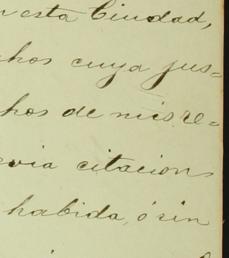 n esta Ciudad,
chos cuya jus=
hos de mis re=
evia citacion
habida, ó sin